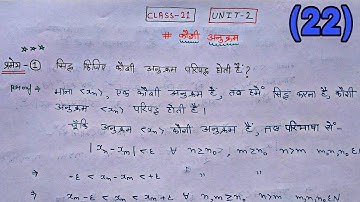 CLASS-21 UNIT-2
(22)
# कौशी अनुक्रम
प्रमेय-① सिद्ध कीजिए कौशी अनुक्रम परिबद्ध होती है?
Proof माना <xn>, एक कौशी अनुक्रम है, तब हमें सिद्ध करना है, कौशी
अनुक्रम <xn> परिबद्ध होती है।
चूँकि अनुक्रम <xn> कौशी अनुक्रम है, तब परिभाषा से-
|xn - xm| < ε ∀ n≥n₀, m≥n₀ n>m m,n,n₀ ∈N
⇒ -ε < xn - xm < +ε
⇒ xm - ε < xn < xm + ε ∀ n,m≥n₀, n>m m,n,n₀∈N